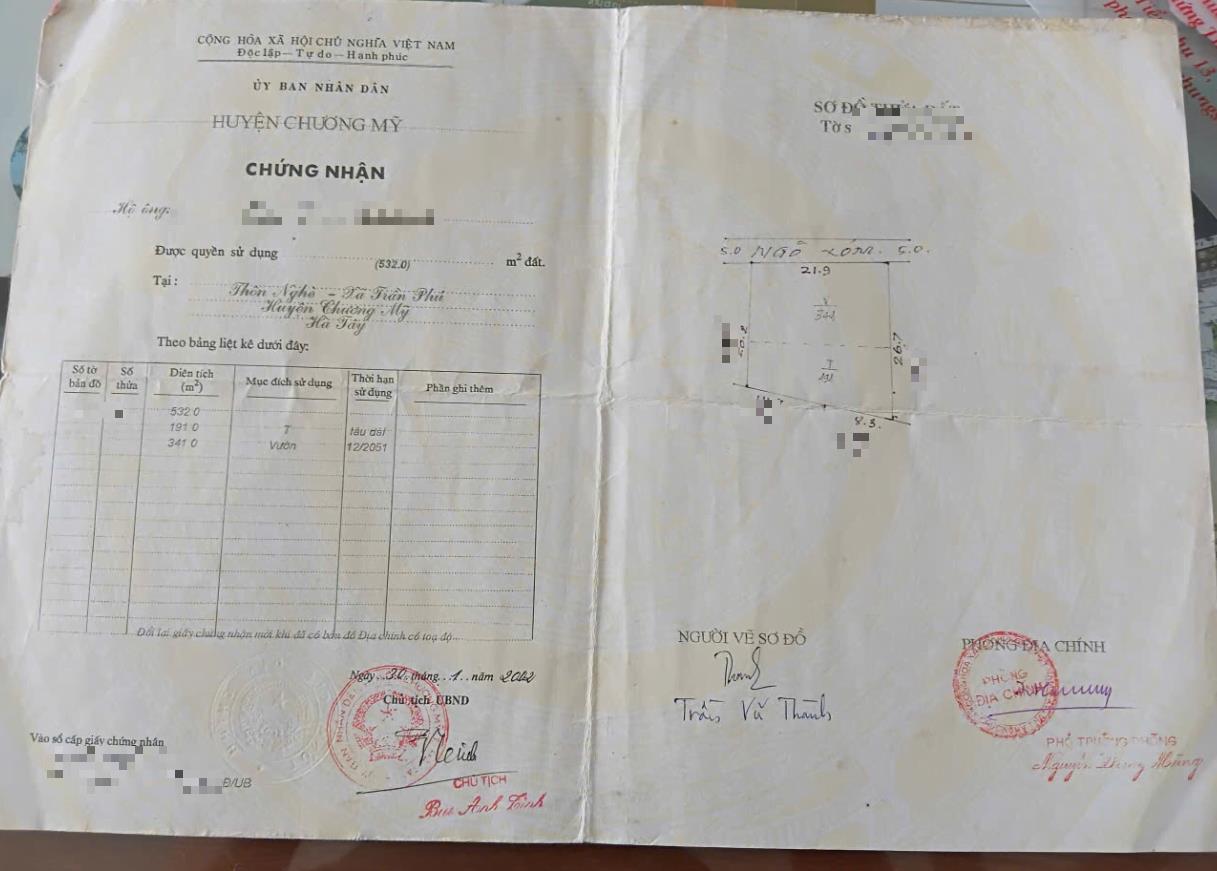 CỘNG HÒA XÃ HỘI CHỦ NGHĨA VIỆT NAM
Độc lập – Tự do – Hạnh phúc
ỦY BAN NHÂN DÂN
HUYỆN CHƯƠNG MỸ
CHỨNG NHẬN
Hộ ông:
Được quyền sử dụng (532.0) m² đất.
Tại : Thôn Nghè – Xã Trần Phú
Huyện Chương Mỹ
Hà Tây
Theo bảng liệt kê dưới đây:
Số tờ bản đồ Số thửa Diện tích (m²) Mục đích sử dụng Thời hạn sử dụng Phần ghi thêm
532.0
191.0 T lâu dài
341.0 Vườn 12/2051
Đổi lại giấy chứng nhận mới khi đã có bản đồ Địa chính có toạ độ
Ngày 30 tháng 1 năm 2002
Chủ tịch UBND
CHỦ TỊCH
Vào sổ cấp giấy chứng nhận
Đ/UB
SƠ ĐỒ
Tờ s
5.0 NGÕ XÓM 5.0
21.9
V
341
26.7
T
191
8.3
NGƯỜI VẼ SƠ ĐỒ
Trần Vũ Thành
PHÒNG ĐỊA CHÍNH
PHÒNG
ĐỊA CHÍNH
PHÓ TRƯỞNG PHÒNG